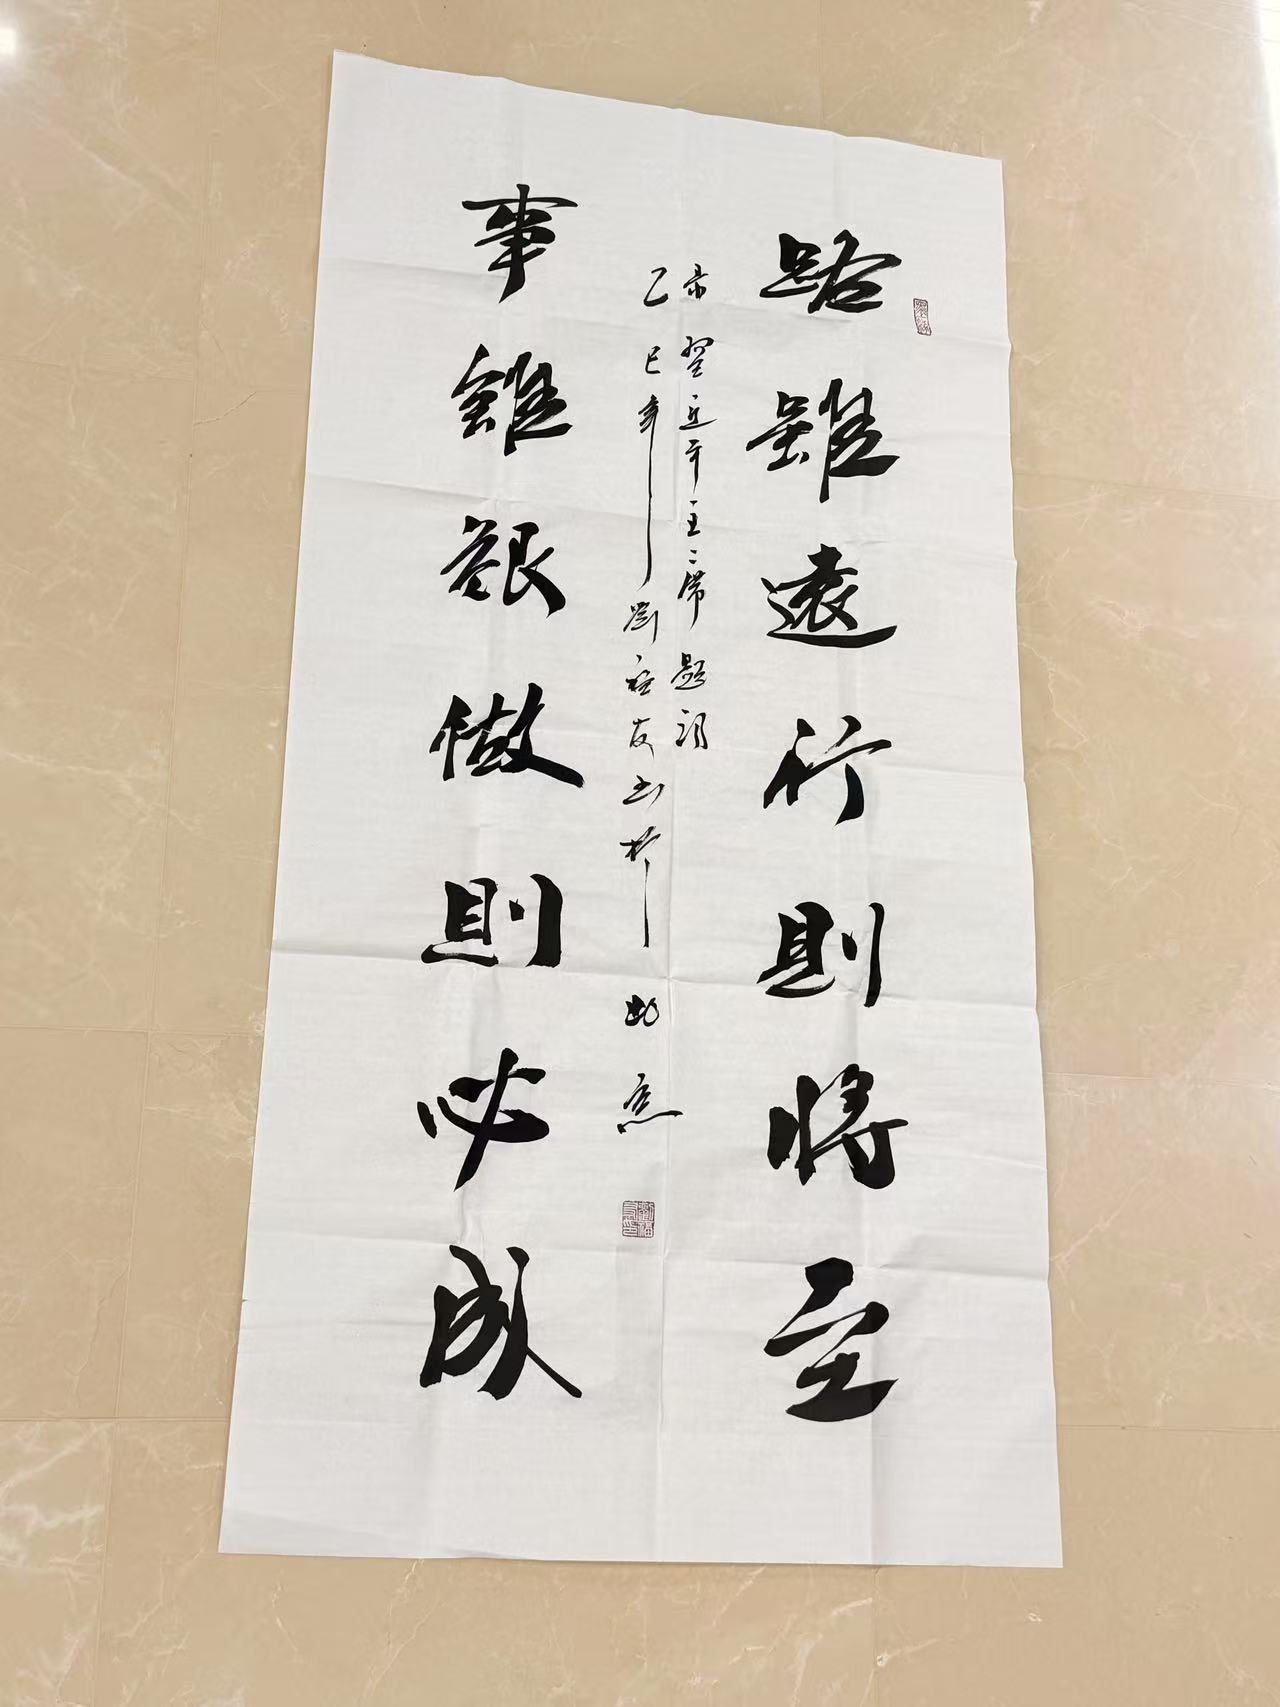 路雖遠行則將至
录習近平主席題詞
乙巳年劉福友书於北京
事雖艱做則必成